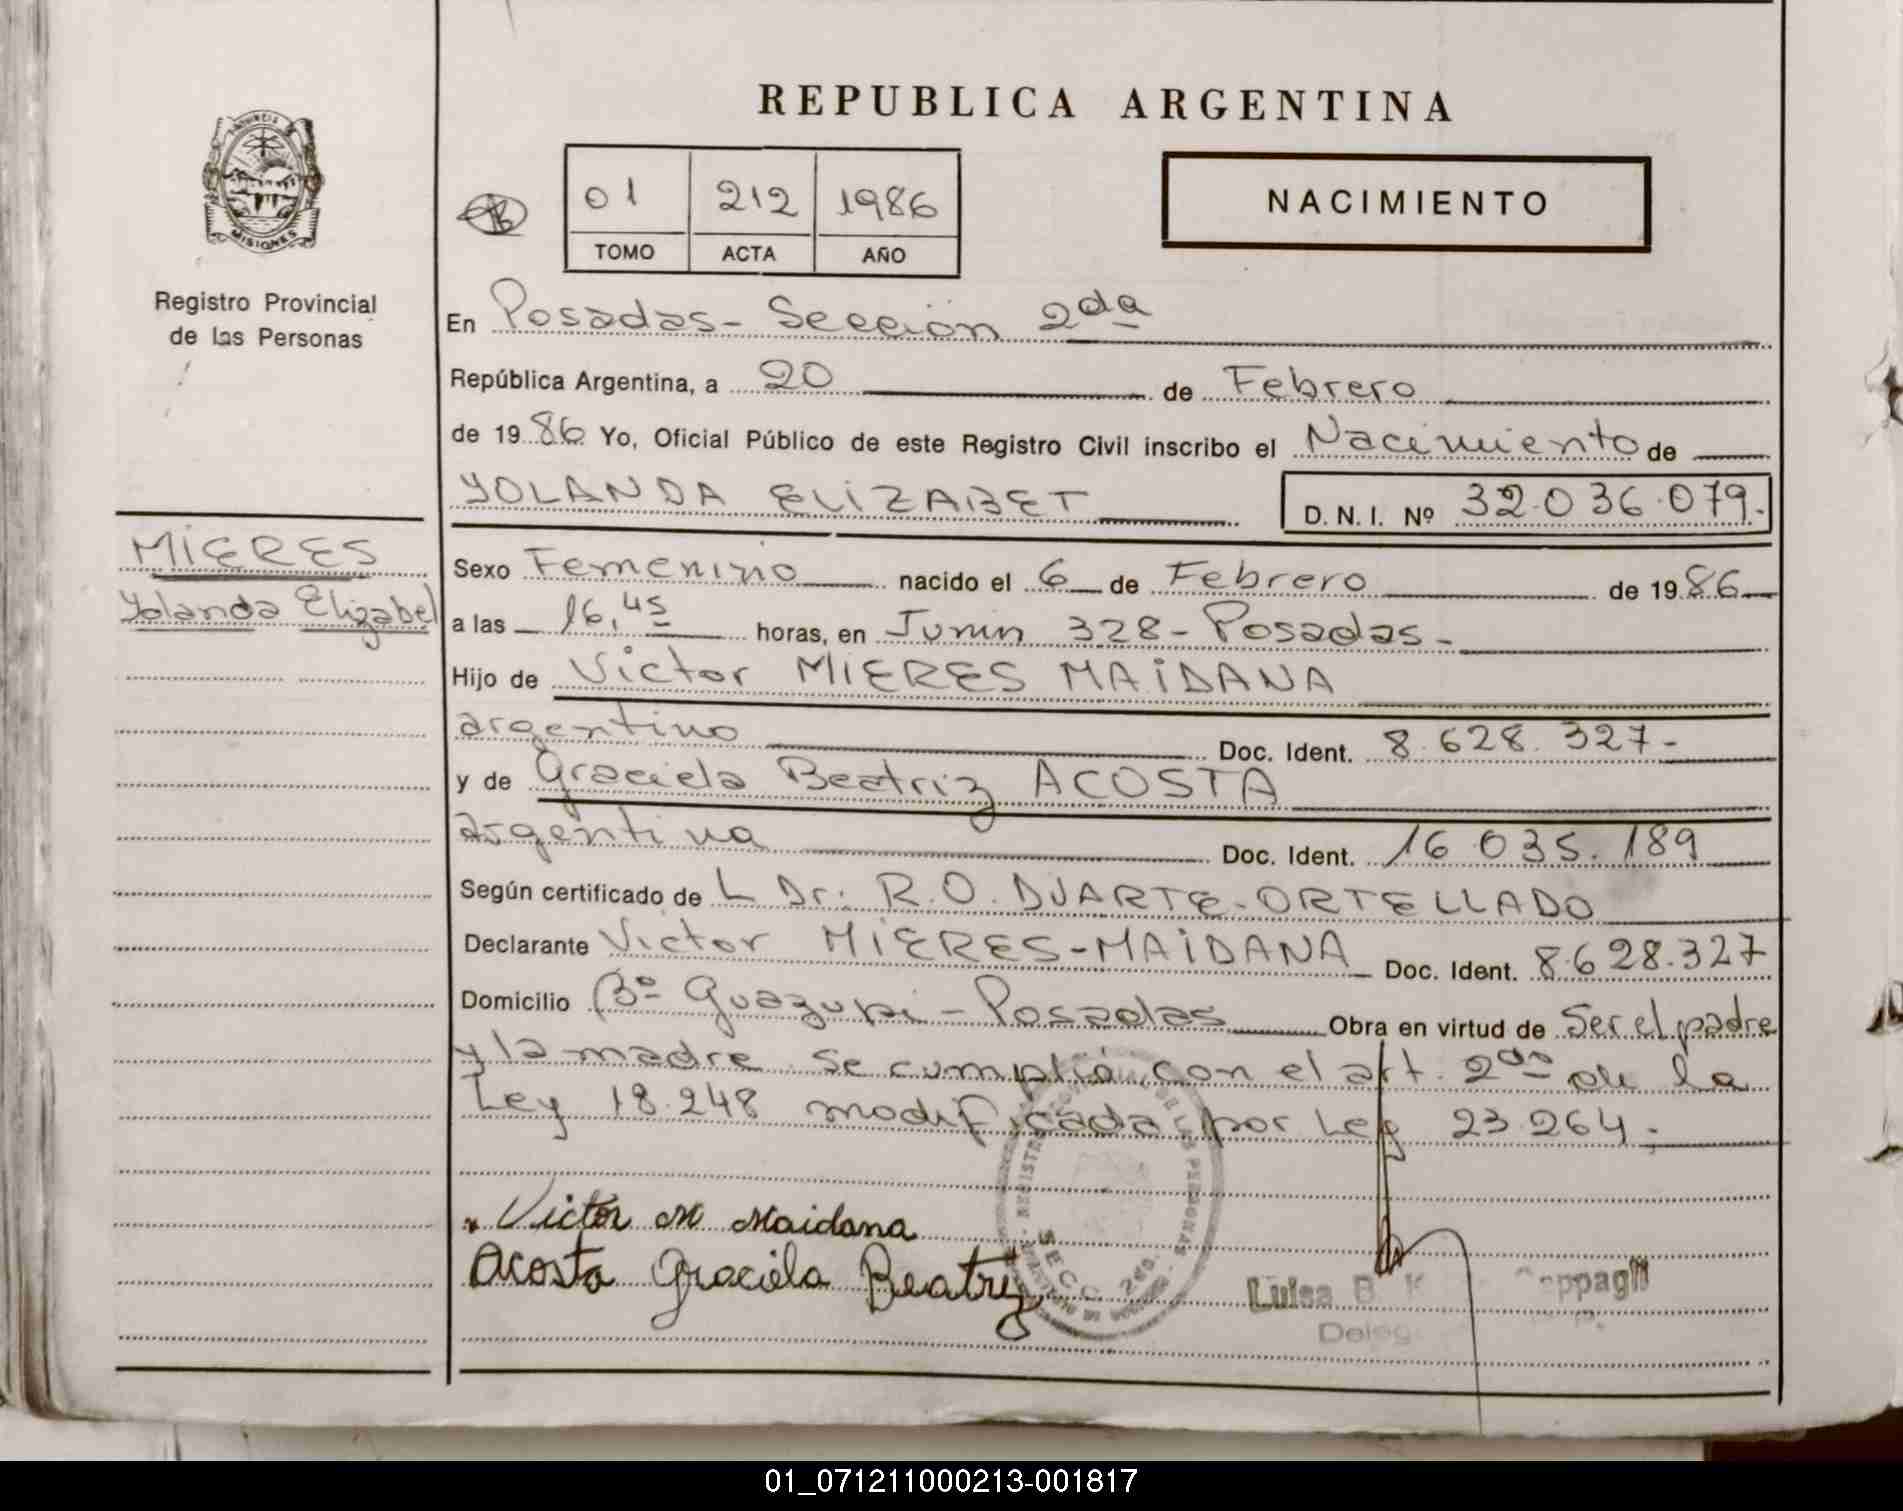 REPUBLICA ARGENTINA
PROVINCIA DE
MISIONES
Registro Provincial
de las Personas
01 212 1986
TOMO ACTA AÑO
NACIMIENTO
En Posadas - Sección 2da
República Argentina, a 20 de Febrero
de 1986 Yo, Oficial Público de este Registro Civil inscribo el Nacimiento de
YOLANDA ELIZABET D. N. I. Nº 32.036.079.
MIERES
Yolanda Elizabet
Sexo Femenino nacido el 6 de Febrero de 1986
a las 16,45 horas, en Junin 328 - Posadas -
Hijo de Victor MIERES MAIDANA
argentino Doc. Ident. 8.628.327-
y de Graciela Beatriz ACOSTA
argentina Doc. Ident. 16.035.189
Según certificado de L Dr: R.O. DUARTE-ORTELLADO
Declarante Victor MIERES-MAIDANA Doc. Ident. 8.628.327
Domicilio Bº Guazupi - Posadas Obra en virtud de Ser el padre
y la madre se cumplió con el art. 2do de la
Ley 18.248 modificada por Ley 23.264.-
Victor M Maidana
Acosta Graciela Beatriz
SECC. 2da.
Luisa B.
01_071211000213-001817